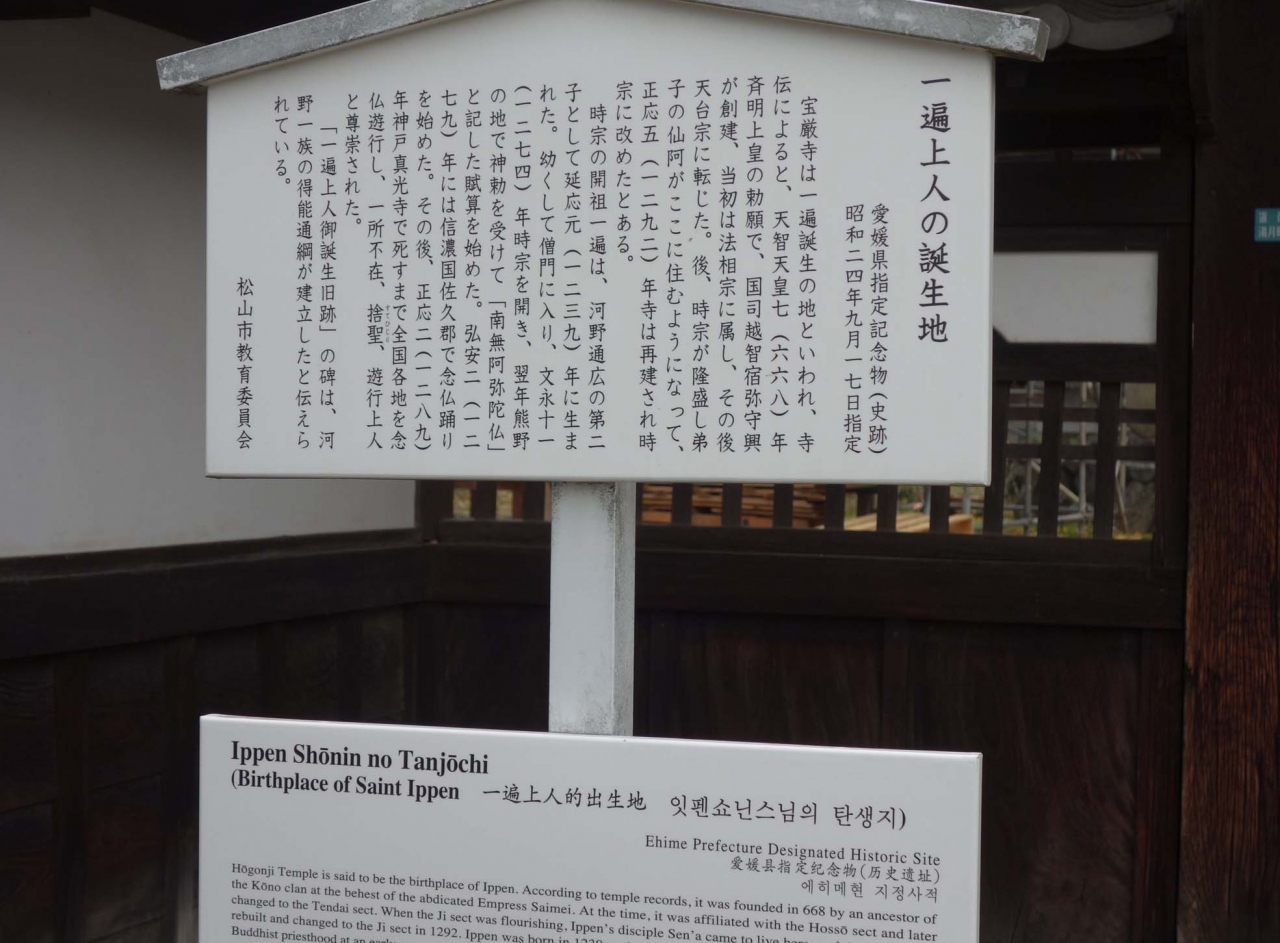 一遍上人の誕生地
愛媛県指定記念物(史跡)
昭和二四年九月一七日指定
宝厳寺は一遍誕生の地といわれ、寺
伝によると、天智天皇七(六六八)年
斉明上皇の勅願で、国司越智宿弥守興
が創建、当初は法相宗に属し、その後
天台宗に転じた。後、時宗が隆盛し弟
子の仙阿がここに住むようになって、
正応五(一二九二)年寺は再建され時
宗に改めたとある。
時宗の開祖一遍は、河野通広の第二
子として延応元(一二三九)年に生ま
れた。幼くして僧門に入り、文永十一
(一二七四)年時宗を開き、翌年熊野
の地で神勅を受けて「南無阿弥陀仏」
と記した賦算を始めた。弘安二(一二
七九)年には信濃国佐久郡で念仏踊り
を始めた。その後、正応二(一二八九)
年神戸真光寺で死すまで全国各地を念
仏遊行し、一所不在、捨聖、遊行上人
と尊崇された。
「一遍上人御誕生旧跡」の碑は、河
野一族の得能通綱が建立したと伝えら
れている。
松山市教育委員会
Ippen Shōnin no Tanjōchi
(Birthplace of Saint Ippen 一遍上人的出生地 잇펜쇼닌스님의 탄생지)
Ehime Prefecture Designated Historic Site
爱媛县指定纪念物(历史遗址)
에히메현 지정사적
Hōgonji Temple is said to be the birthplace of Ippen. According to temple records, it was founded in 668 by an ancestor of
the Kōno clan at the behest of the abdicated Empress Saimei. At the time, it was affiliated with the Hossō sect and later
changed to the Tendai sect. When the Ji sect was flourishing, Ippen's disciple Sen'a came to live
rebuilt and changed to the Ji sect in 1292. Ippen was born in
Buddhist priesthood at an